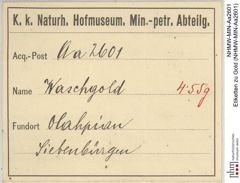 K. k. Naturh. Hofmuseum. Min.-petr. Abteilg.
Acq.-Post Aa 2601
Name Waschgold 455g
Fundort Olahpian
Siebenbürgen
NHMW-MIN-Aa2601
Etiketten zu Gold (NHMW-MIN-Aa2601)